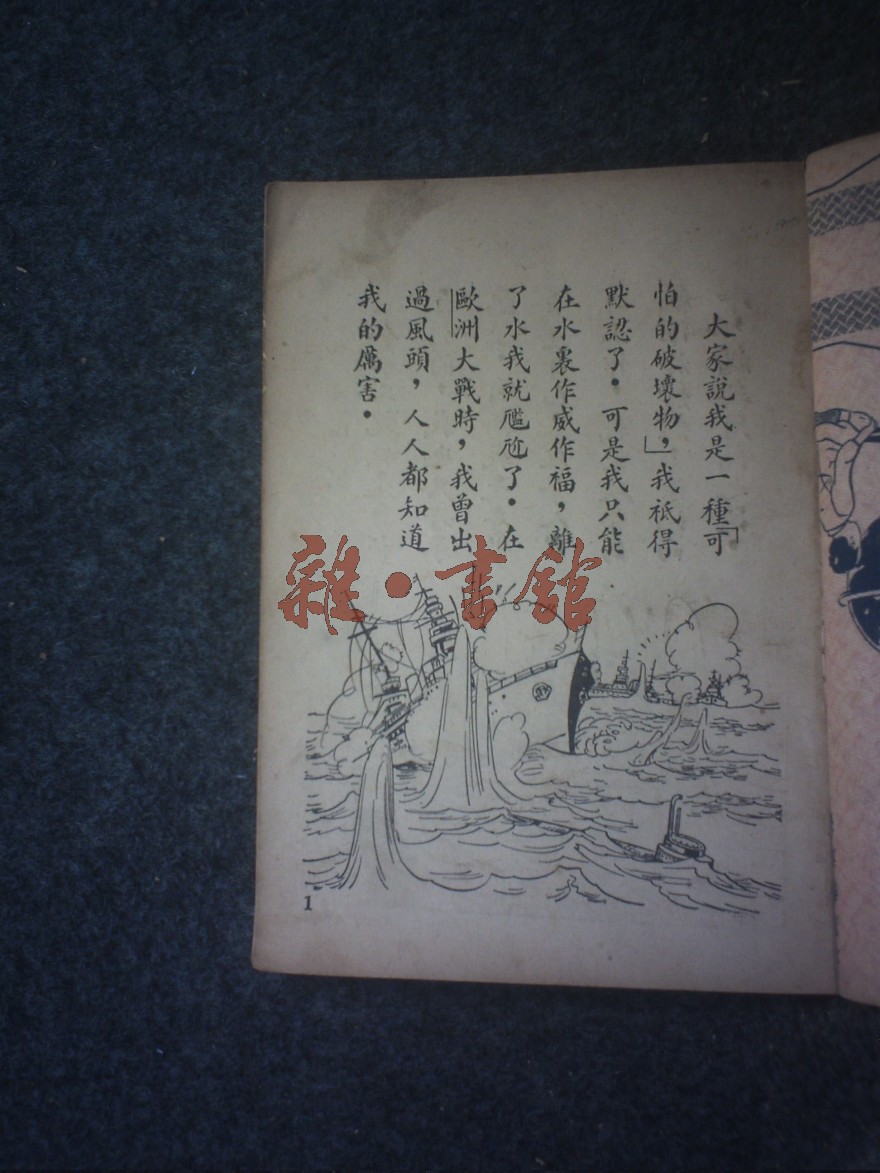 大家說我是一種「可
怕的破壞物」，我祇得
默認了．可是我只能
在水裏作威作福，離
了水我就尷尬了．在
歐洲大戰時，我曾出
過風頭，人人都知道
我的厲害．
雜·書館
1